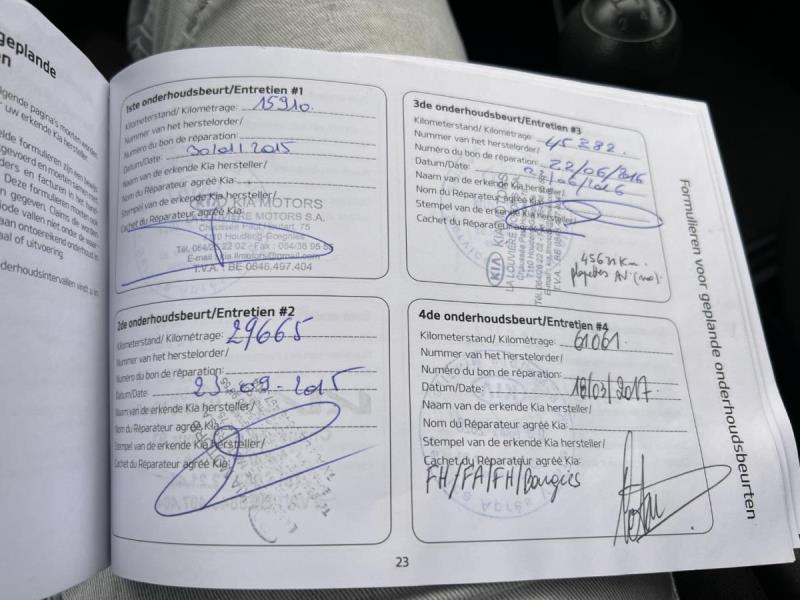 geplande
en
lgende pagina's moeten worden
uw erkende Kia hersteller
lde formulieren zijn een bewijs
Deze formulieren moeten
gegeven. Claims als
ode vallen niet onder de
aan ontoereikend onderhoud
aal of uitvoering.
derhoudsintervallen vindt u in
1ste onderhoudsbeurt/Entretien #1
Kilometerstand/ Kilométrage: 15910
Nummer van het herstelorder/
Numéro du bon de réparation:
Datum/Date: 30/01/2015
Naam van de erkende Kia hersteller/
Nom du Réparateur agréé Kia:
Stempel van de erkende Kia hersteller/
Cachet du Réparateur agréé Kia:
KIA MOTORS
MOTORS S.A.
7110 Houdeng-Goegnies
Tél. 064/ 22 02 - Fax : 064/36 95
T.V.A. : BE 0846.497.404
2de onderhoudsbeurt/Entretien #2
Kilometerstand/ Kilométrage: 29665
Nummer van het herstelorder/
Numéro du bon de réparation:
Datum/Date: 23-09-2015
Naam van de erkende Kia hersteller/
Nom du Réparateur agréé Kia:
Stempel van de erkende Kia hersteller/
Cachet du Réparateur agréé Kia:
3de onderhoudsbeurt/Entretien #3
Kilometerstand/ Kilométrage: 45382
Nummer van het herstelorder/
Numéro du bon de réparation: 22/06/2016
Datum/Date: 22/06/2016
Naam van de erkende Kia hersteller/
Nom du Réparateur agréé Kia:
Stempel van de erkende Kia hersteller/
Cachet du Réparateur agréé Kia:
KIA MOTORS
LA LOUVIERE MOTORS
Km
4de onderhoudsbeurt/Entretien #4
Kilometerstand/ Kilométrage: 61061
Nummer van het herstelorder/
Numéro du bon de réparation:
Datum/Date: 18/03/2017
Naam van de erkende Kia hersteller/
Nom du Réparateur agréé Kia:
Stempel van de erkende Kia hersteller/
Cachet du Réparateur agréé Kia:
FH/FA/FH/Bougies
Formulieren voor geplande onderhoudsbeurten
23